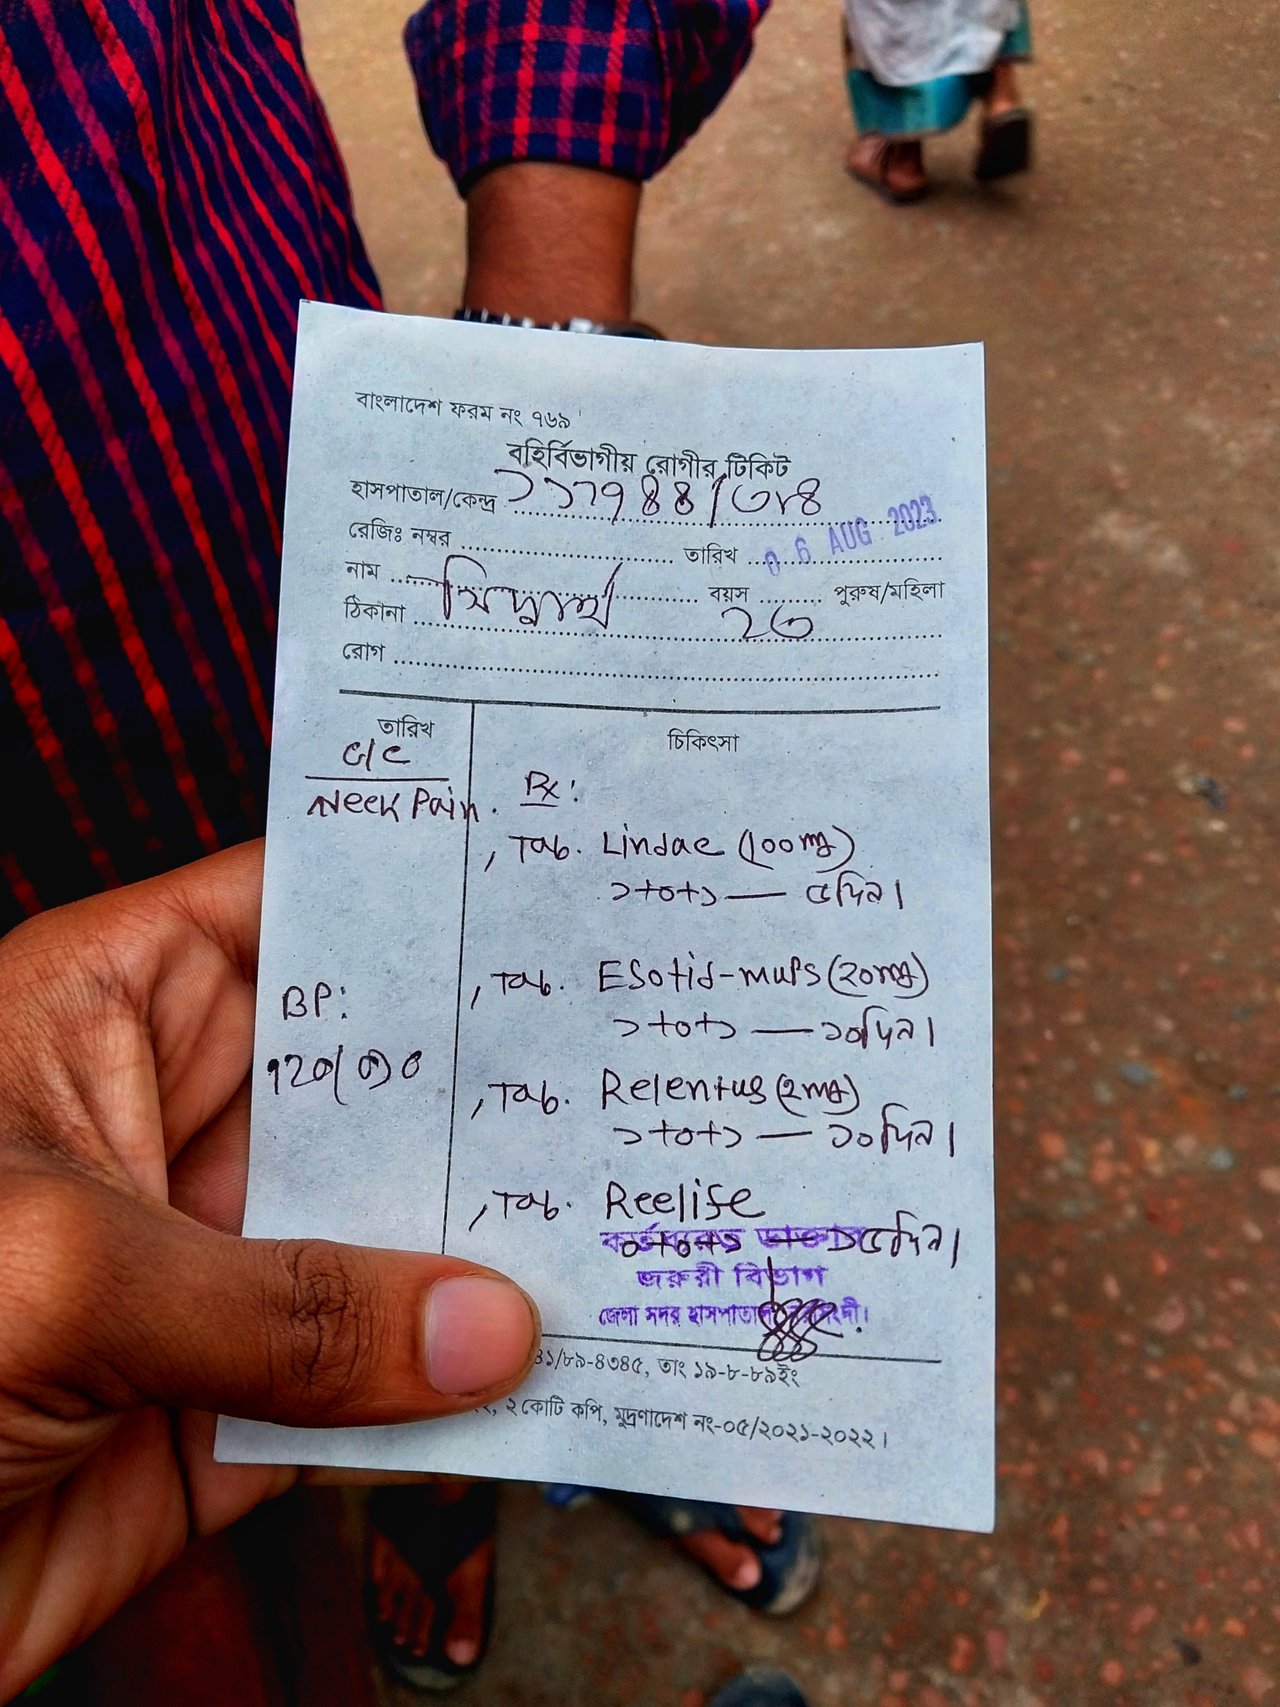 বাংলাদেশ ফরম নং ৭৬৯
বহির্বিভাগীয় রোগীর টিকিট
হাসপাতাল/কেন্দ্র ১১৭৪৪/৩৮৪
রেজিঃ নম্বর তারিখ 06 AUG 2023
নাম বয়স পুরুষ/মহিলা
ঠিকানা ২৩
রোগ
তারিখ চিকিৎসা
C/C
Neck Pain.
Rx:
, Tab. Lindac (100mg)
১+০+১ — ৫দিন।
, Tab. Esotid-mups (20mg)
১+০+১ — ১০দিন।
BP:
120/
, Tab. Relentus (2mg)
১+০+১ — ১০দিন।
, Tab. Reelife
০+০+১ — ১৫দিন।
কর্তব্যরত ডাক্তার
জরুরী বিভাগ
জেলা সদর হাসপাতাল, নরসিংদী।
৪১/৮৯-৪৩৪৫, তাং ১৯-৮-৮৯ইং
২ কোটি কপি, মুদ্রণাদেশ নং-০৫/২০২১-২০২২।